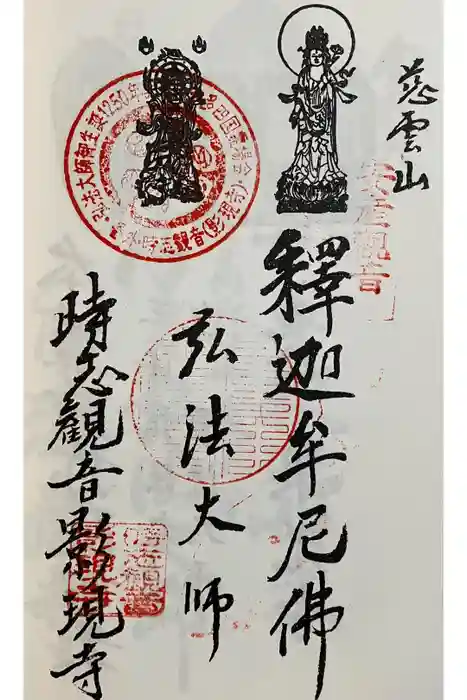 慈雲山
安産観音
釋迦牟尼佛
弘法大师
時志觀音影現寺
弘法大師御生誕1250年
時志観音(影現寺)